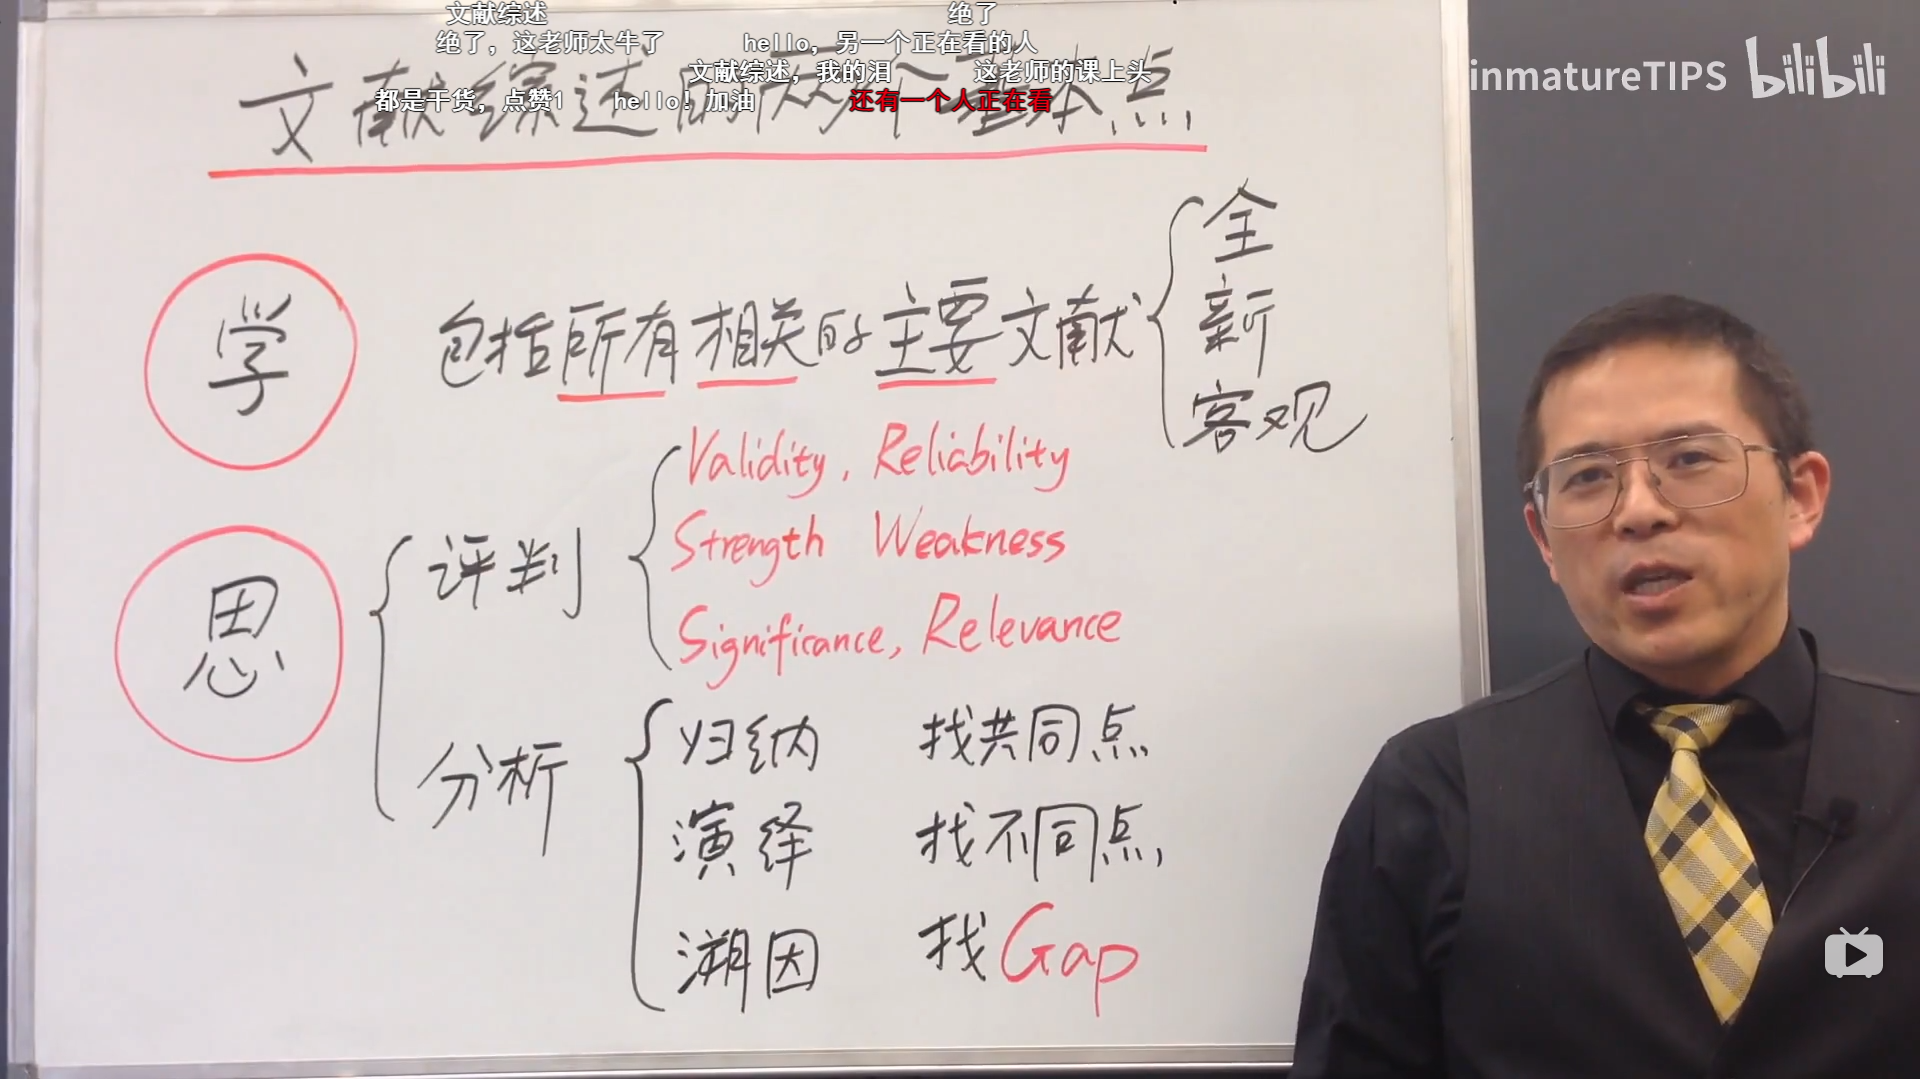 文献综述
绝了
绝了，这老师太牛了
hello，另一个正在看的人
文献综述，我的泪
这老师的课上头
都是干货，点赞1
hello！加油
还有一个人正在看
inmatureTIPS bilibili
文献综述的两个基本点
学
包括所有相关的主要文献
全
新
客观
思
评判
Validity, Reliability
Strength Weakness
Significance, Relevance
分析
归纳 找共同点
演绎 找不同点
溯因 找Gap